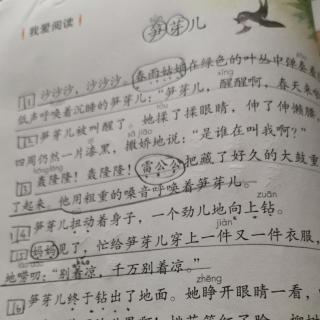 我爱阅读
笋芽儿
1 沙沙沙,沙沙沙。春雨姑娘在绿色的叶丛中弹奏着
xǐng
低声呼唤着沉睡的笋芽儿:“笋芽儿,醒醒啊,春天来
róu
2 笋芽儿被叫醒了。她揉了揉眼睛,伸了伸懒腰,
sā jiāo
四周仍然一片漆黑,撒娇地说:“是谁在叫我啊?”
3 轰隆隆!轰隆隆!雷公公把藏了好久的大鼓重
了起来。他用粗重的嗓音呼唤着笋芽儿。
zuān
4 笋芽儿扭动着身子,一个劲儿地向上钻。
5 妈妈见了,忙给笋芽儿穿上一件又一件衣服,
地唠叨:“别着凉,千万别着凉。”
zhēng
6 笋芽儿终于钻出了地面。她睁开眼睛一看,